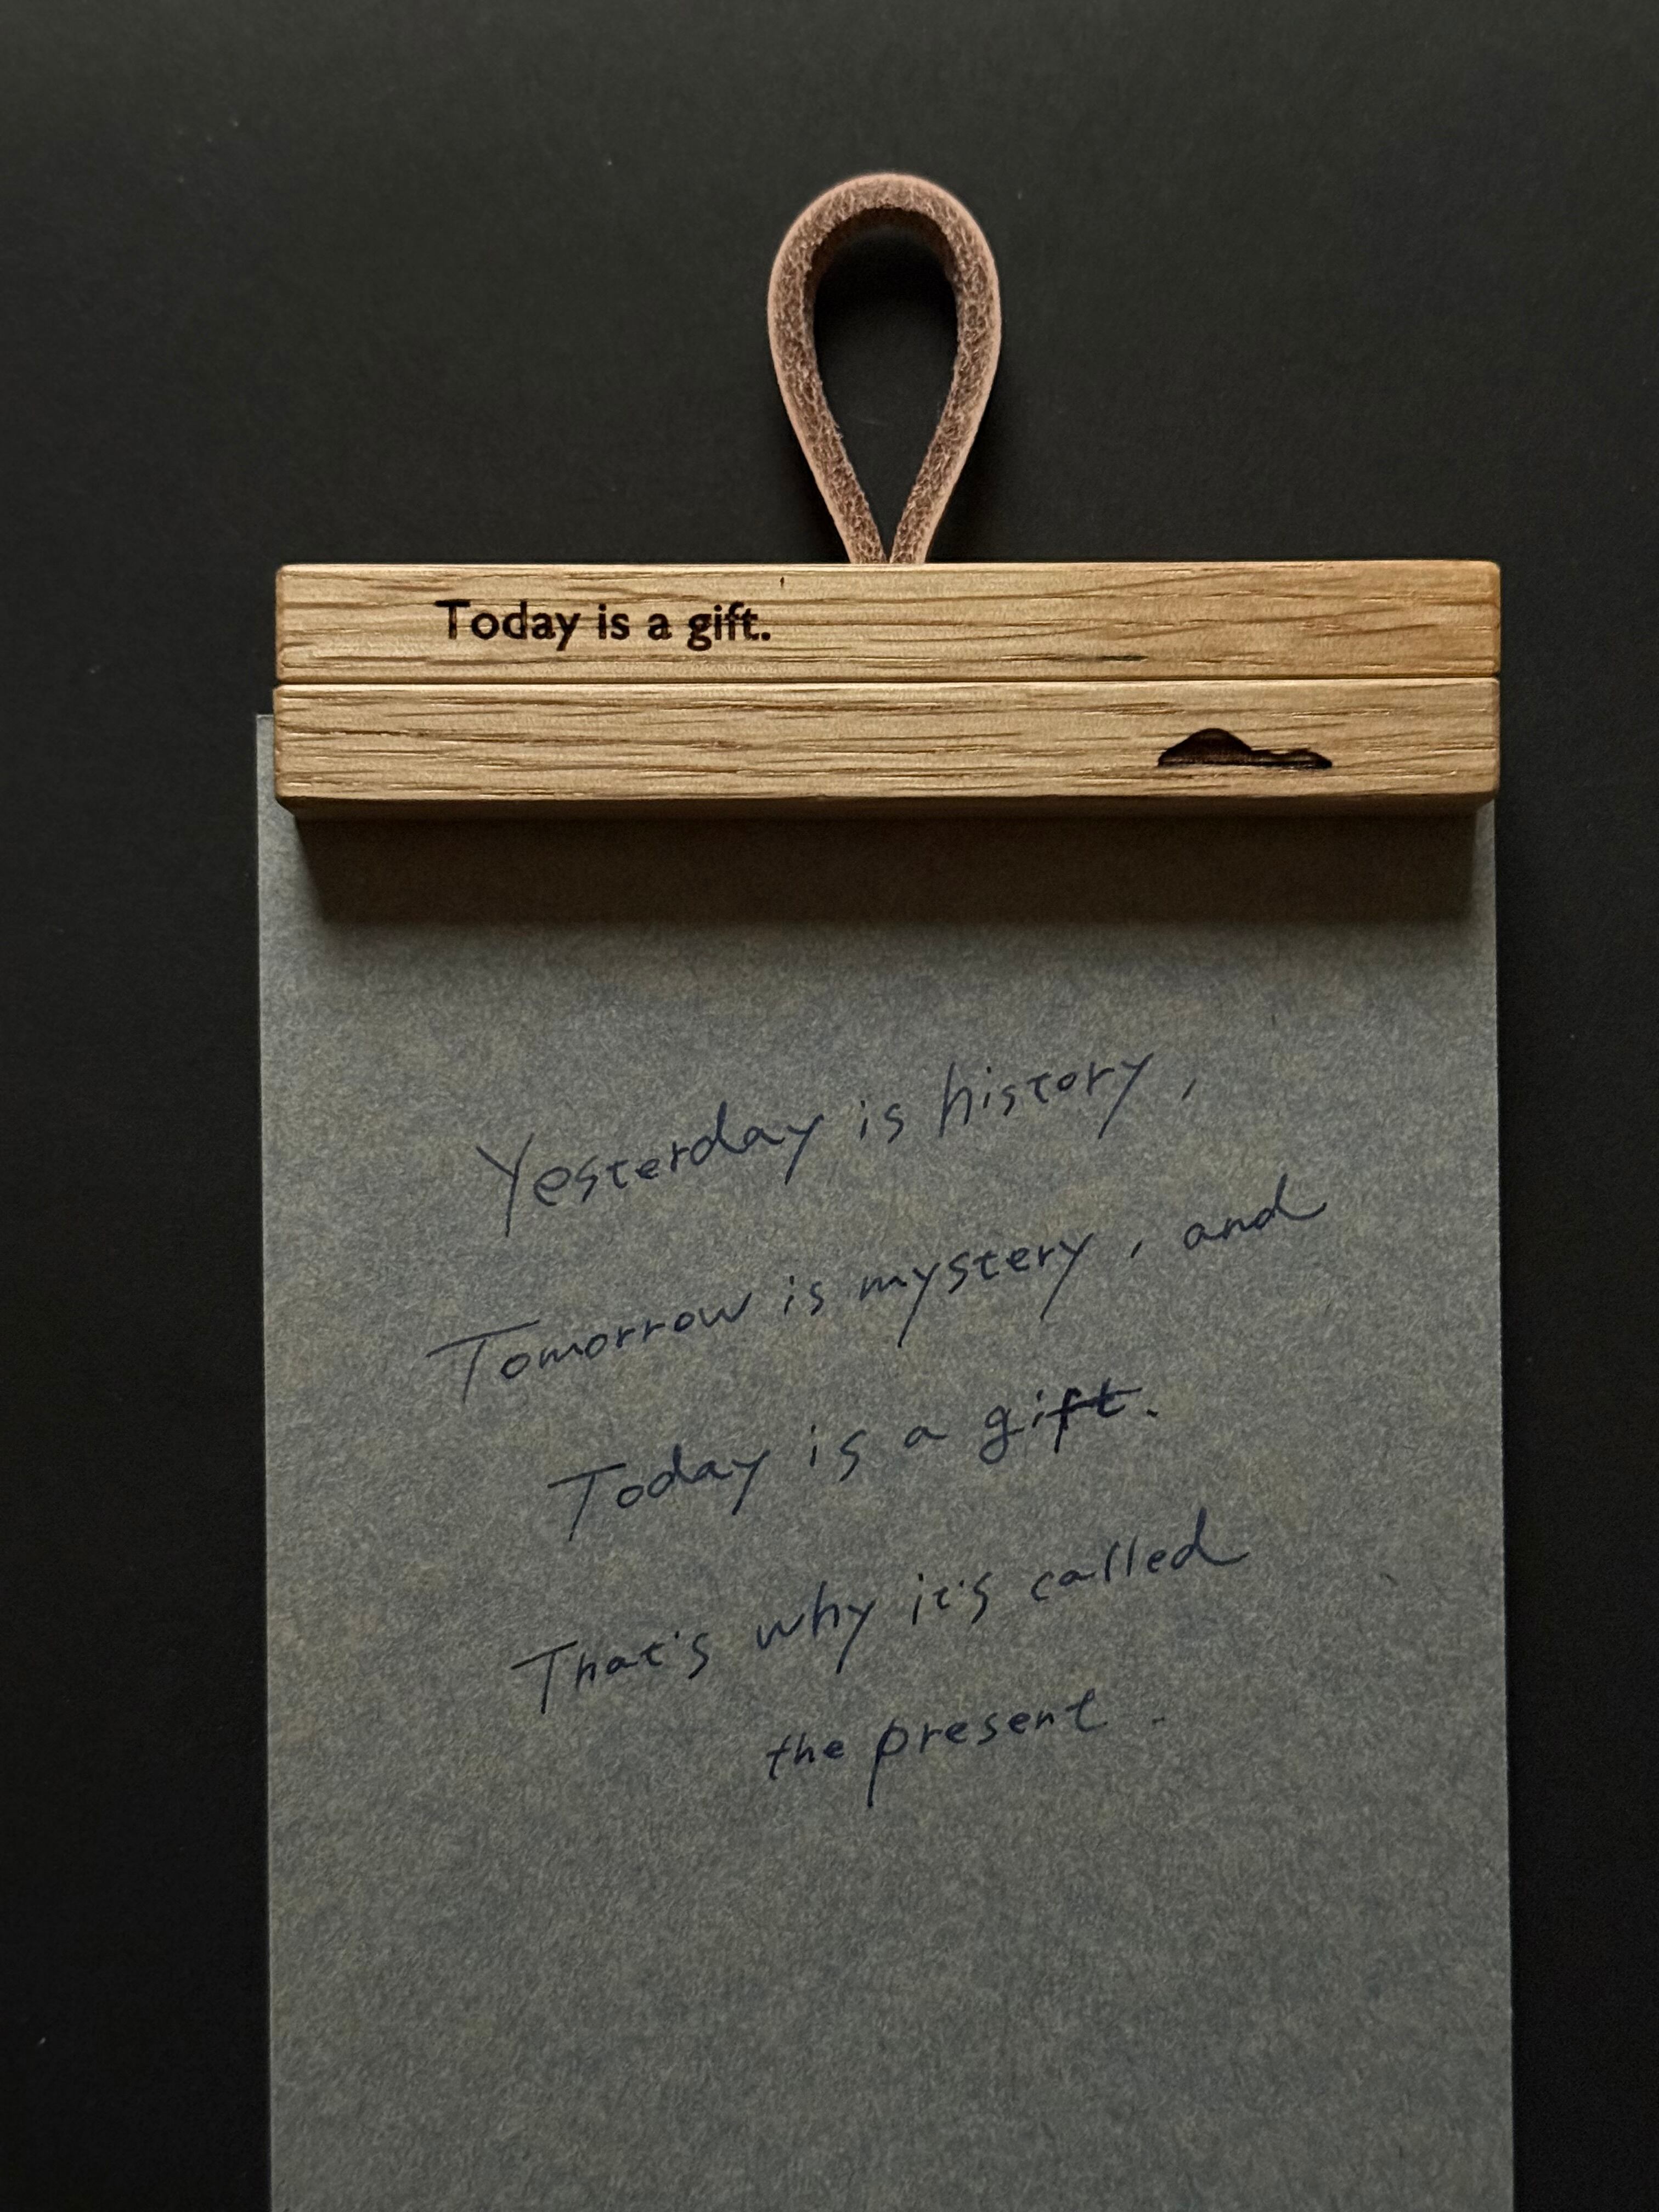 Today is a gift.
Yesterday is history,
Tomorrow is mystery, and
Today is a gift.
That's why it's called
the present.